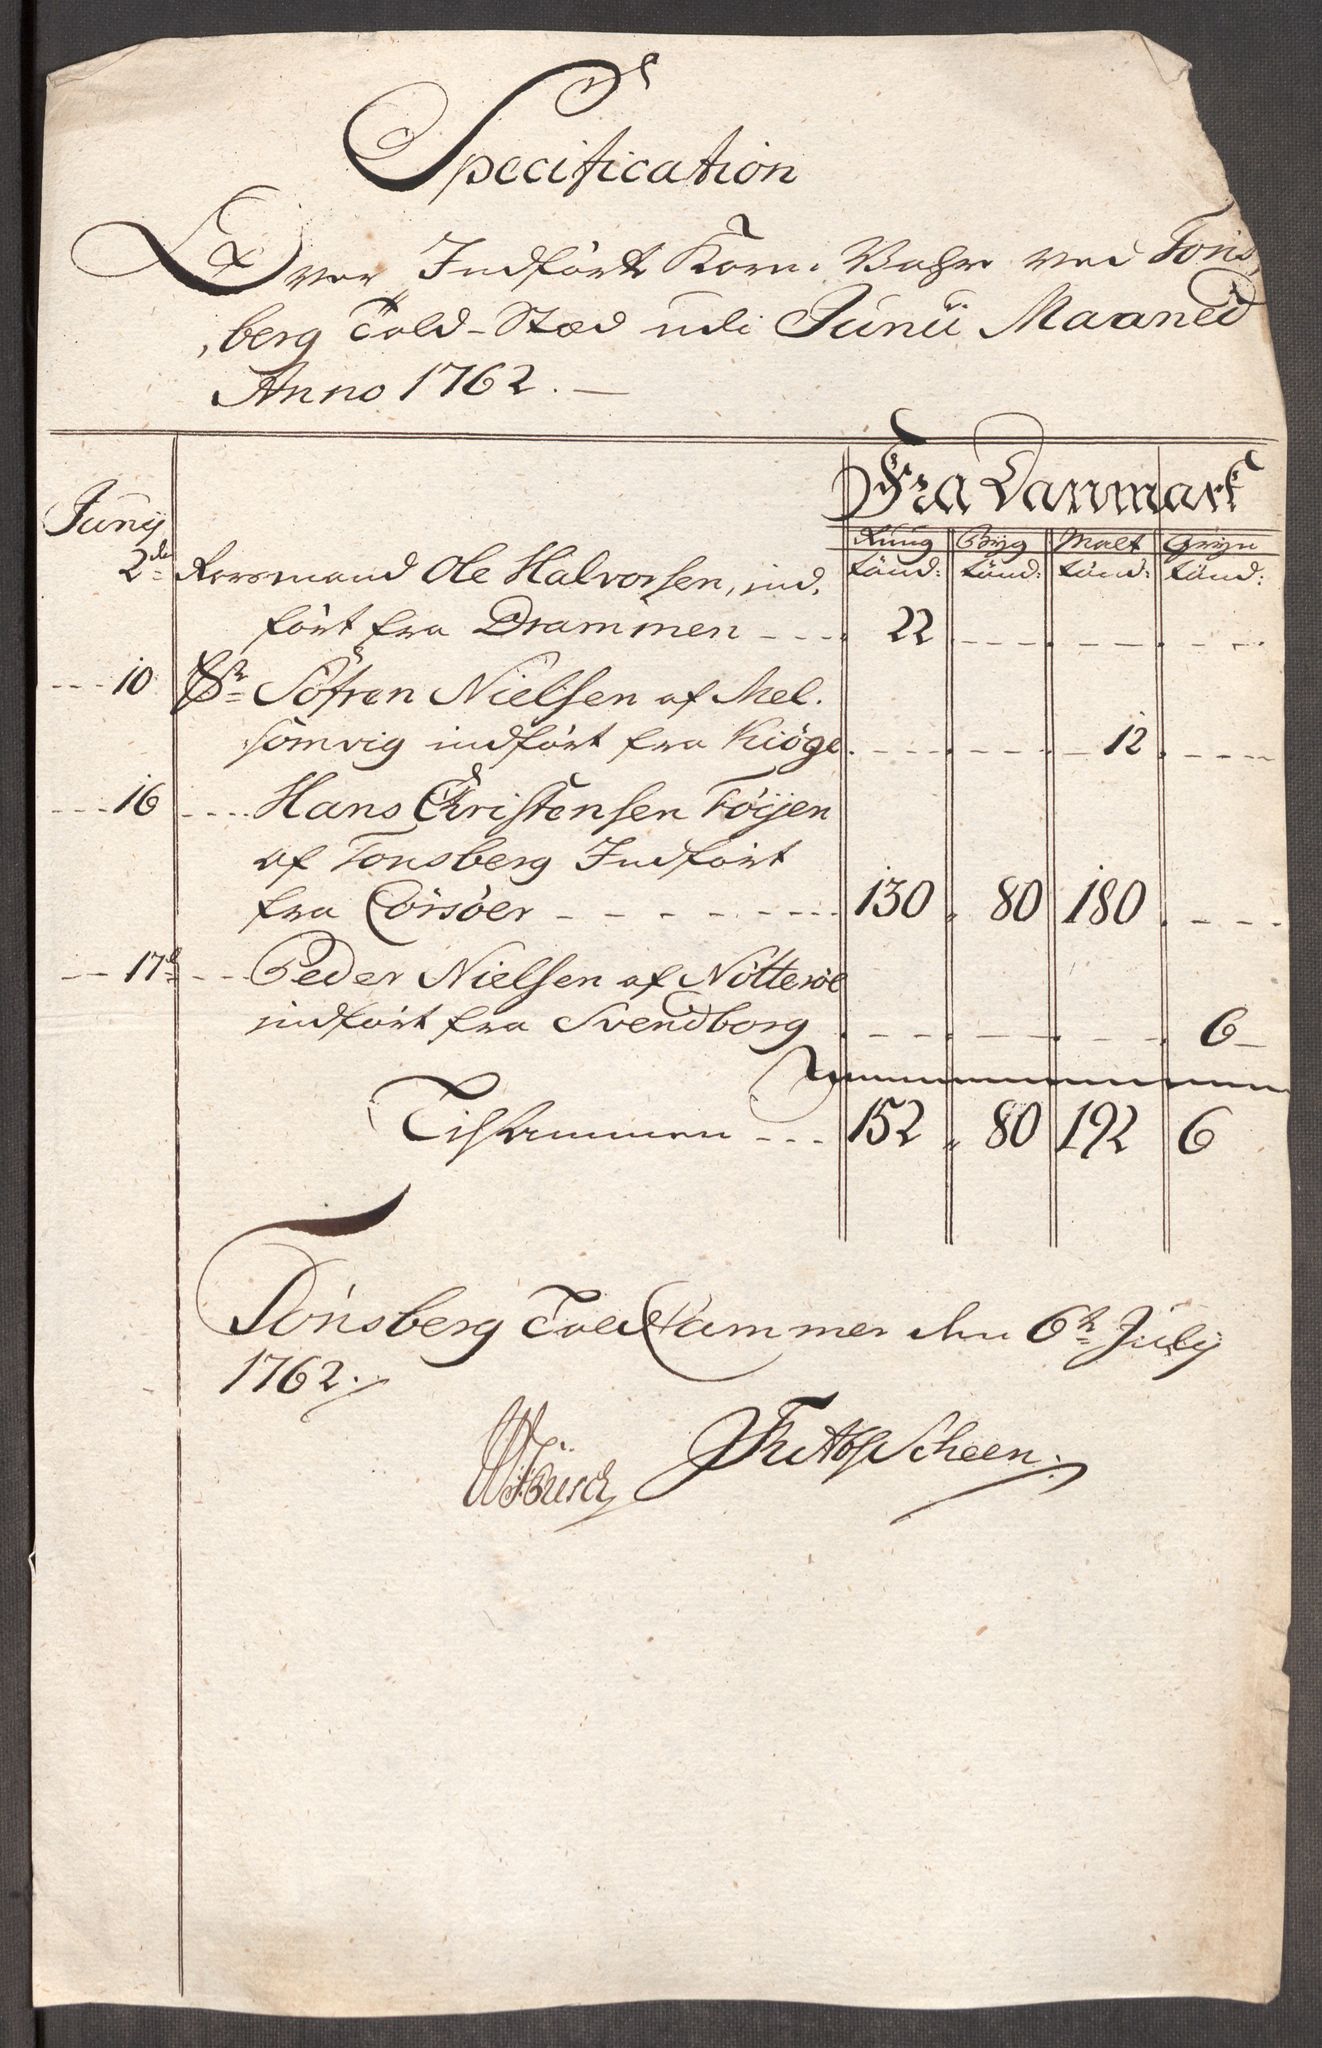 Specification
Over Indført Korn Vahre ved Tons,
,berg Told-Stæd udi Junii Maaned
Anno 1762.
Fra Danmark
Juny
Rüug Byg Malt Gryn
tønd: tønd: tønd: tønd:
2den Rorsmand Ole Halvorsen, ind,
ført fra Drammen 22
10 Sr Söfren Nielsen af Mel.
somvig indført fra Kiöge 12
16 Hans Christensen Föÿen
af Tonsberg Indført
fra Corsöer 130 80 180
17de Peder Nielsen af Nötteröe
indført fra Svendborg 6
Tilsammen 152 80 192 6
Tönsberg Told Kammer den 6te July
1762.
Büsch Scheen.